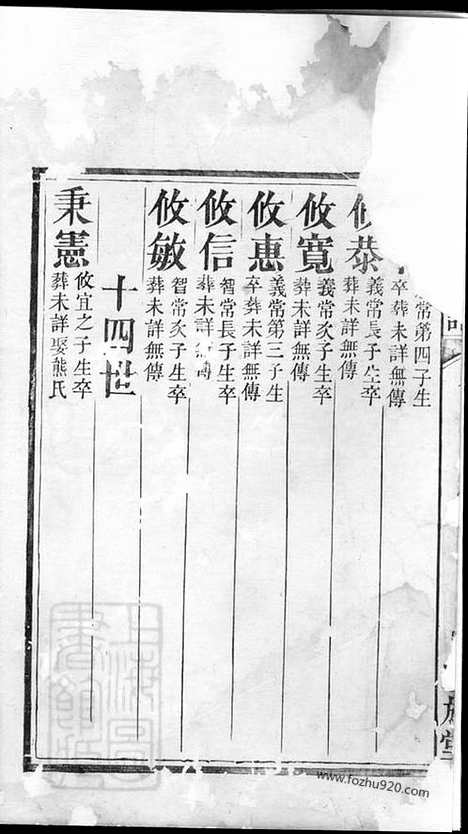 常第四子生
卒葬未詳無傳
攸恭
義常長子生卒
葬未詳無傳
攸寬
義常次子生卒
葬未詳無傳
攸惠
義常第三子生
卒葬未詳無傳
攸信
智常長子生卒
葬未詳無傳
攸敏
智常次子生卒
葬未詳無傳
十四世
秉憲
攸宜之子生卒
葬未詳娶熊氏
堂
上海圖
書館藏
www.fozhu920.com